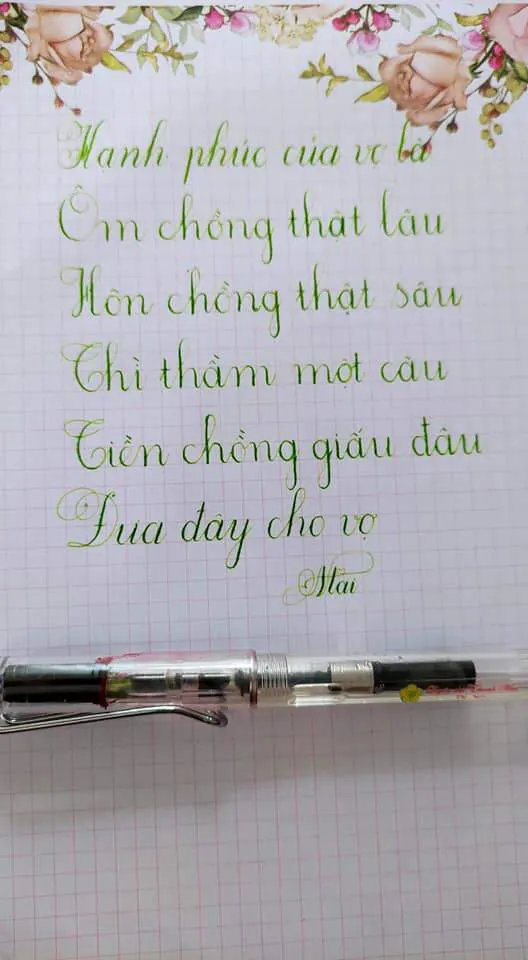 Hạnh phúc của vợ là
Ôm chồng thật lâu
Hôn chồng thật sâu
Thì thầm một câu
Tiền chồng giấu đâu
Đưa đây cho vợ
Mai